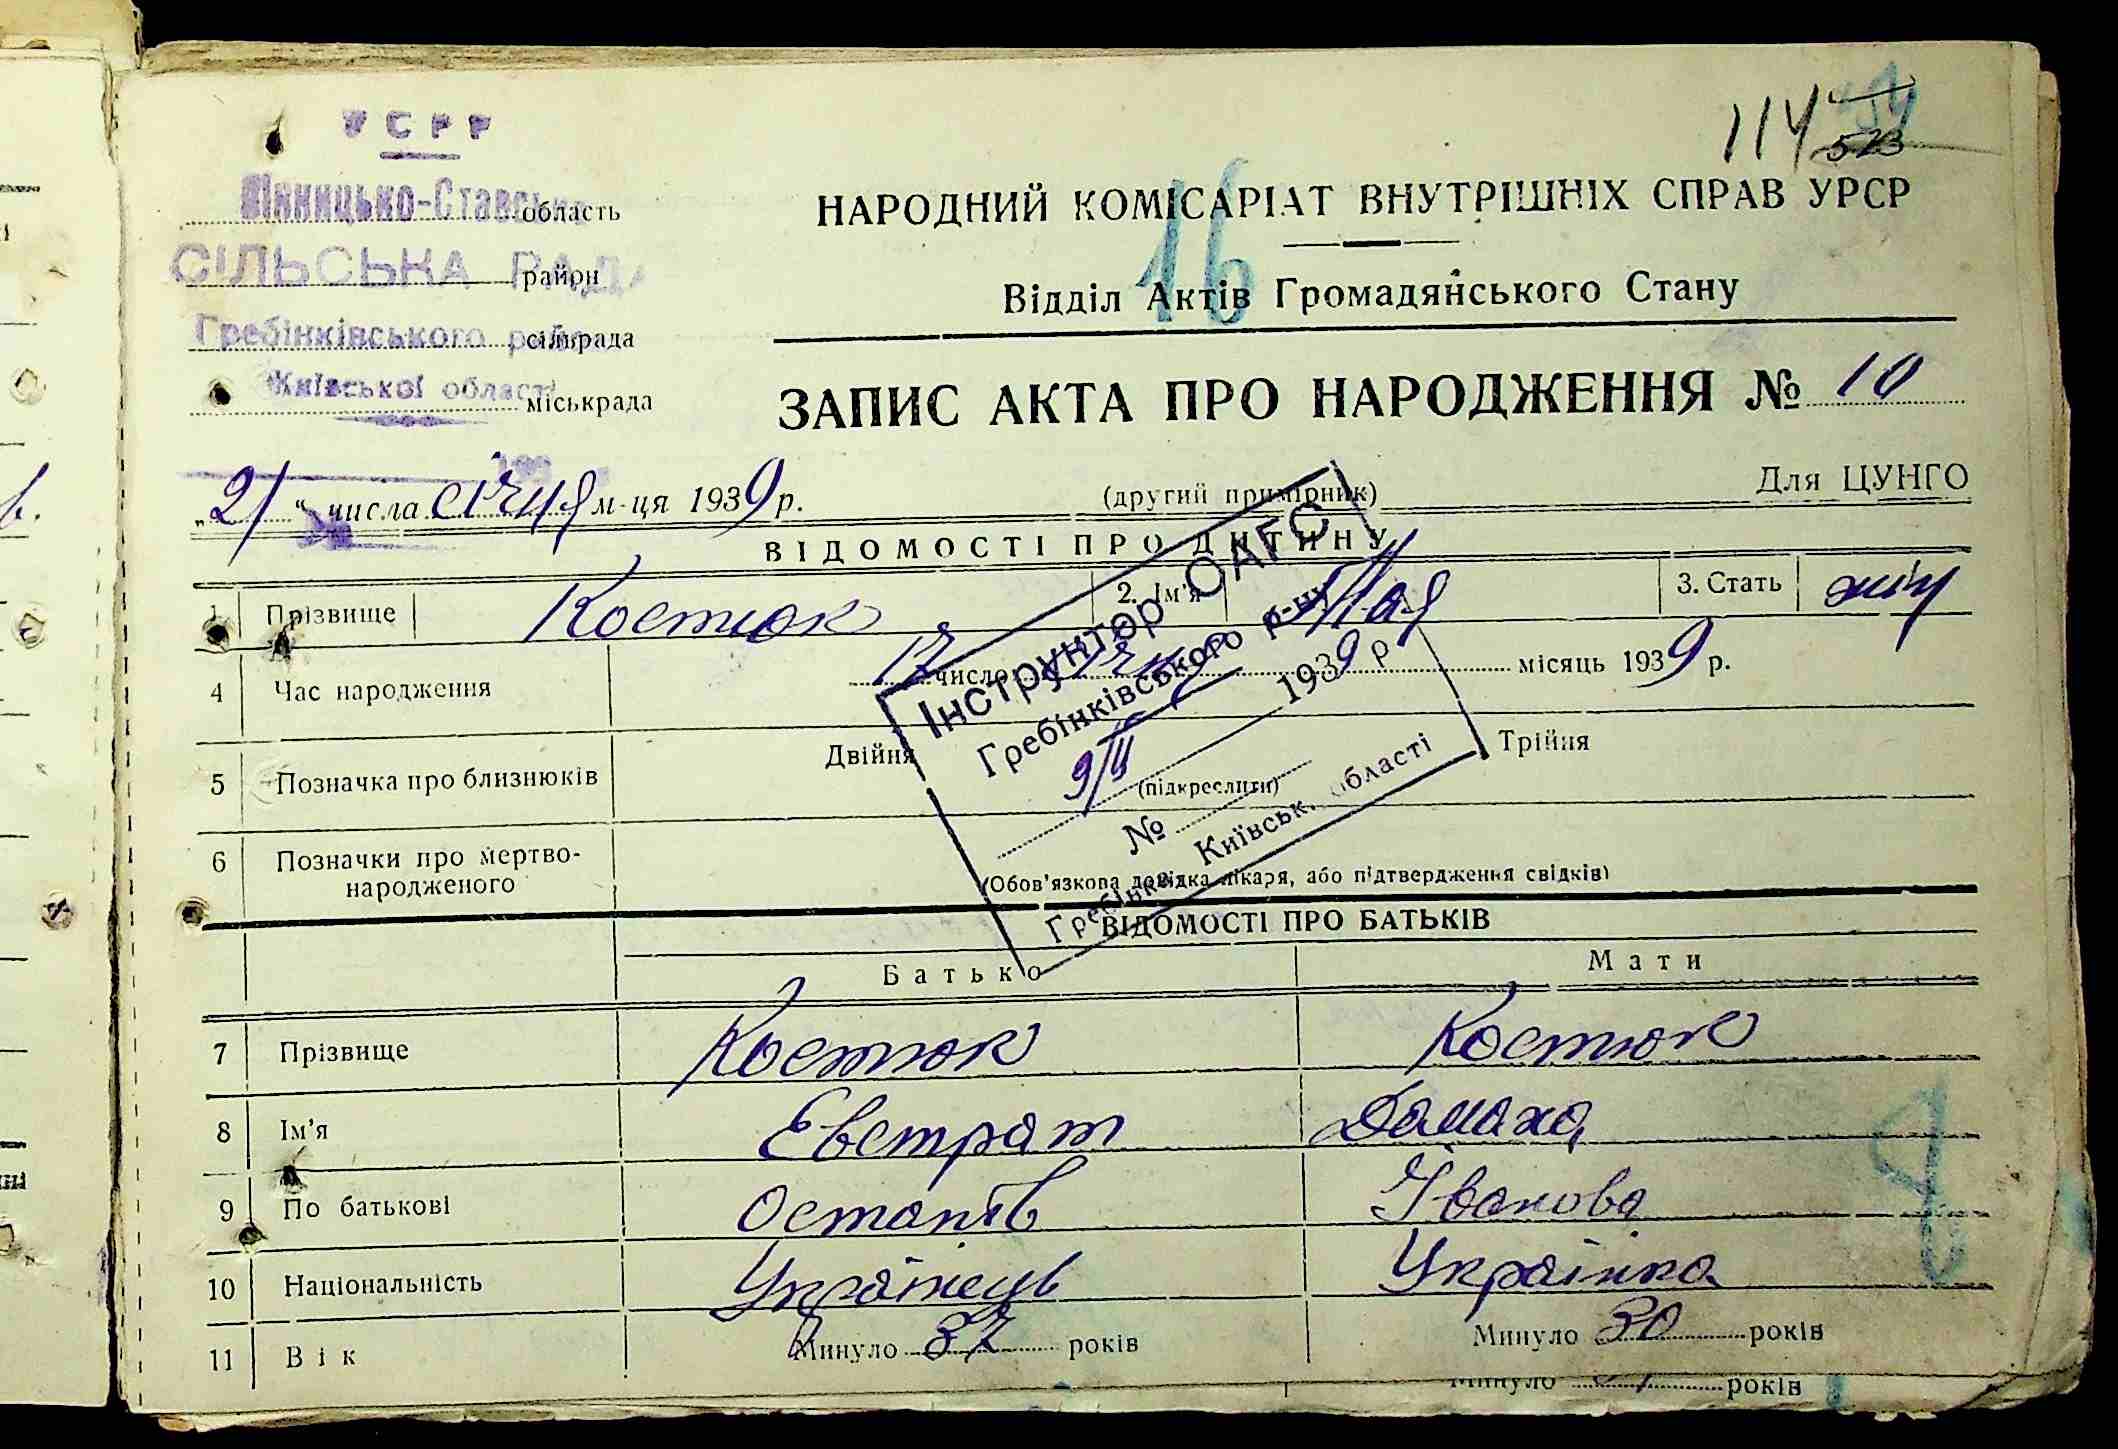 114 523
УСРР
Вінницько-Ставська область
НАРОДНИЙ КОМІСАРІАТ ВНУТРІШНІХ СПРАВ УРСР
16
СІЛЬСЬКА РАДА район
Відділ Актів Громадянського Стану
Гребінківського р-ну сільрада
Київської області міськрада
ЗАПИС АКТА ПРО НАРОДЖЕННЯ № 10
„21“ числа січня м-ця 1939 р.
(другий примірник)
Для ЦУНГО
ВІДОМОСТІ ПРО ДИТИНУ
1 Прізвище Костюк 2. Ім'я 3. Стать жін
4 Час народження 17 число січня місяць 1939 р.
Інструктор ОАГС
Гребінківського р-ну
9/II 1939 р
№
Гребінка Київськ. області
5 Позначка про близнюків Двійня (підкреслити) Трійня
6 Позначки про мертво-
народженого
(Обов'язкова довідка лікаря, або підтвердження свідків)
ВІДОМОСТІ ПРО БАТЬКІВ
Батько Мати
7 Прізвище Костюк Костюк
8 Ім'я Евстрат Домаха
9 По батькові Остапів Іванова
10 Національність Українець Українка
11 Вік Минуло 37 років Минуло 30 років
Минуло років